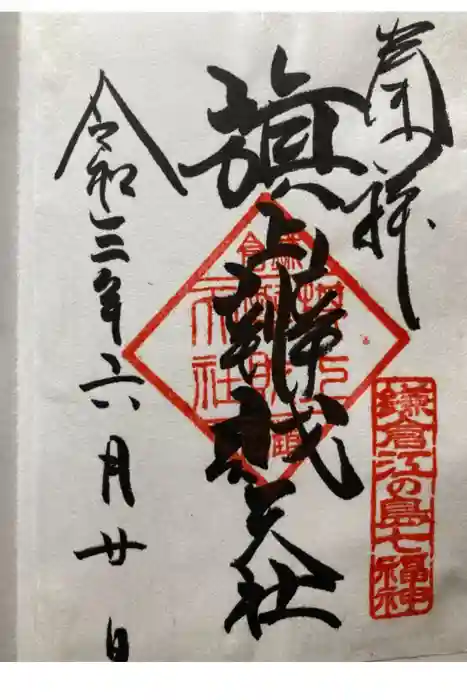 奉拝
旗上辨財天社
令和三年六月廿日
鎌倉江の島七福神